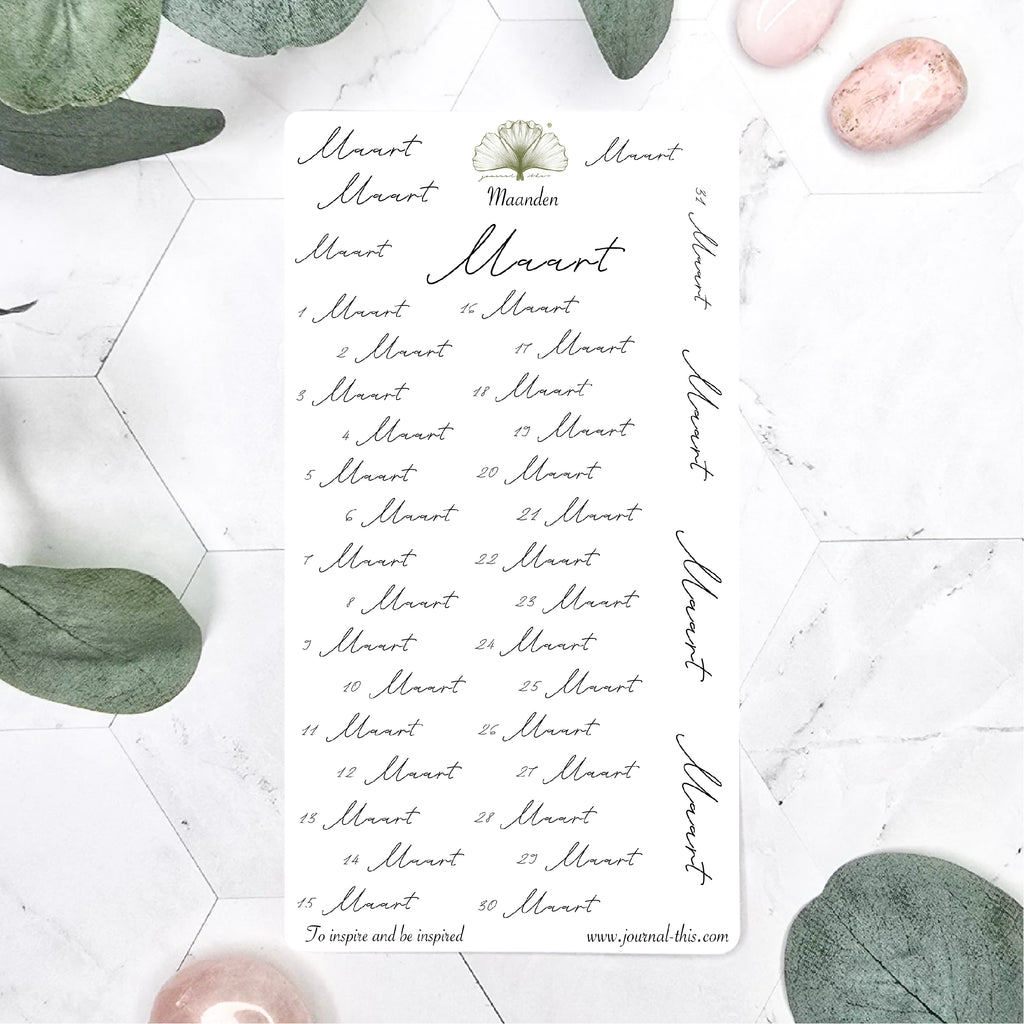 Maart
Maart
Maart
journal this
®
Maanden
Maart
Maart
1 Maart
2 Maart
3 Maart
4 Maart
5 Maart
6 Maart
7 Maart
8 Maart
9 Maart
10 Maart
11 Maart
12 Maart
13 Maart
14 Maart
15 Maart
16 Maart
17 Maart
18 Maart
19 Maart
20 Maart
21 Maart
22 Maart
23 Maart
24 Maart
25 Maart
26 Maart
27 Maart
28 Maart
29 Maart
30 Maart
31 Maart
Maart
Maart
Maart
To inspire and be inspired
www.journal-this.com